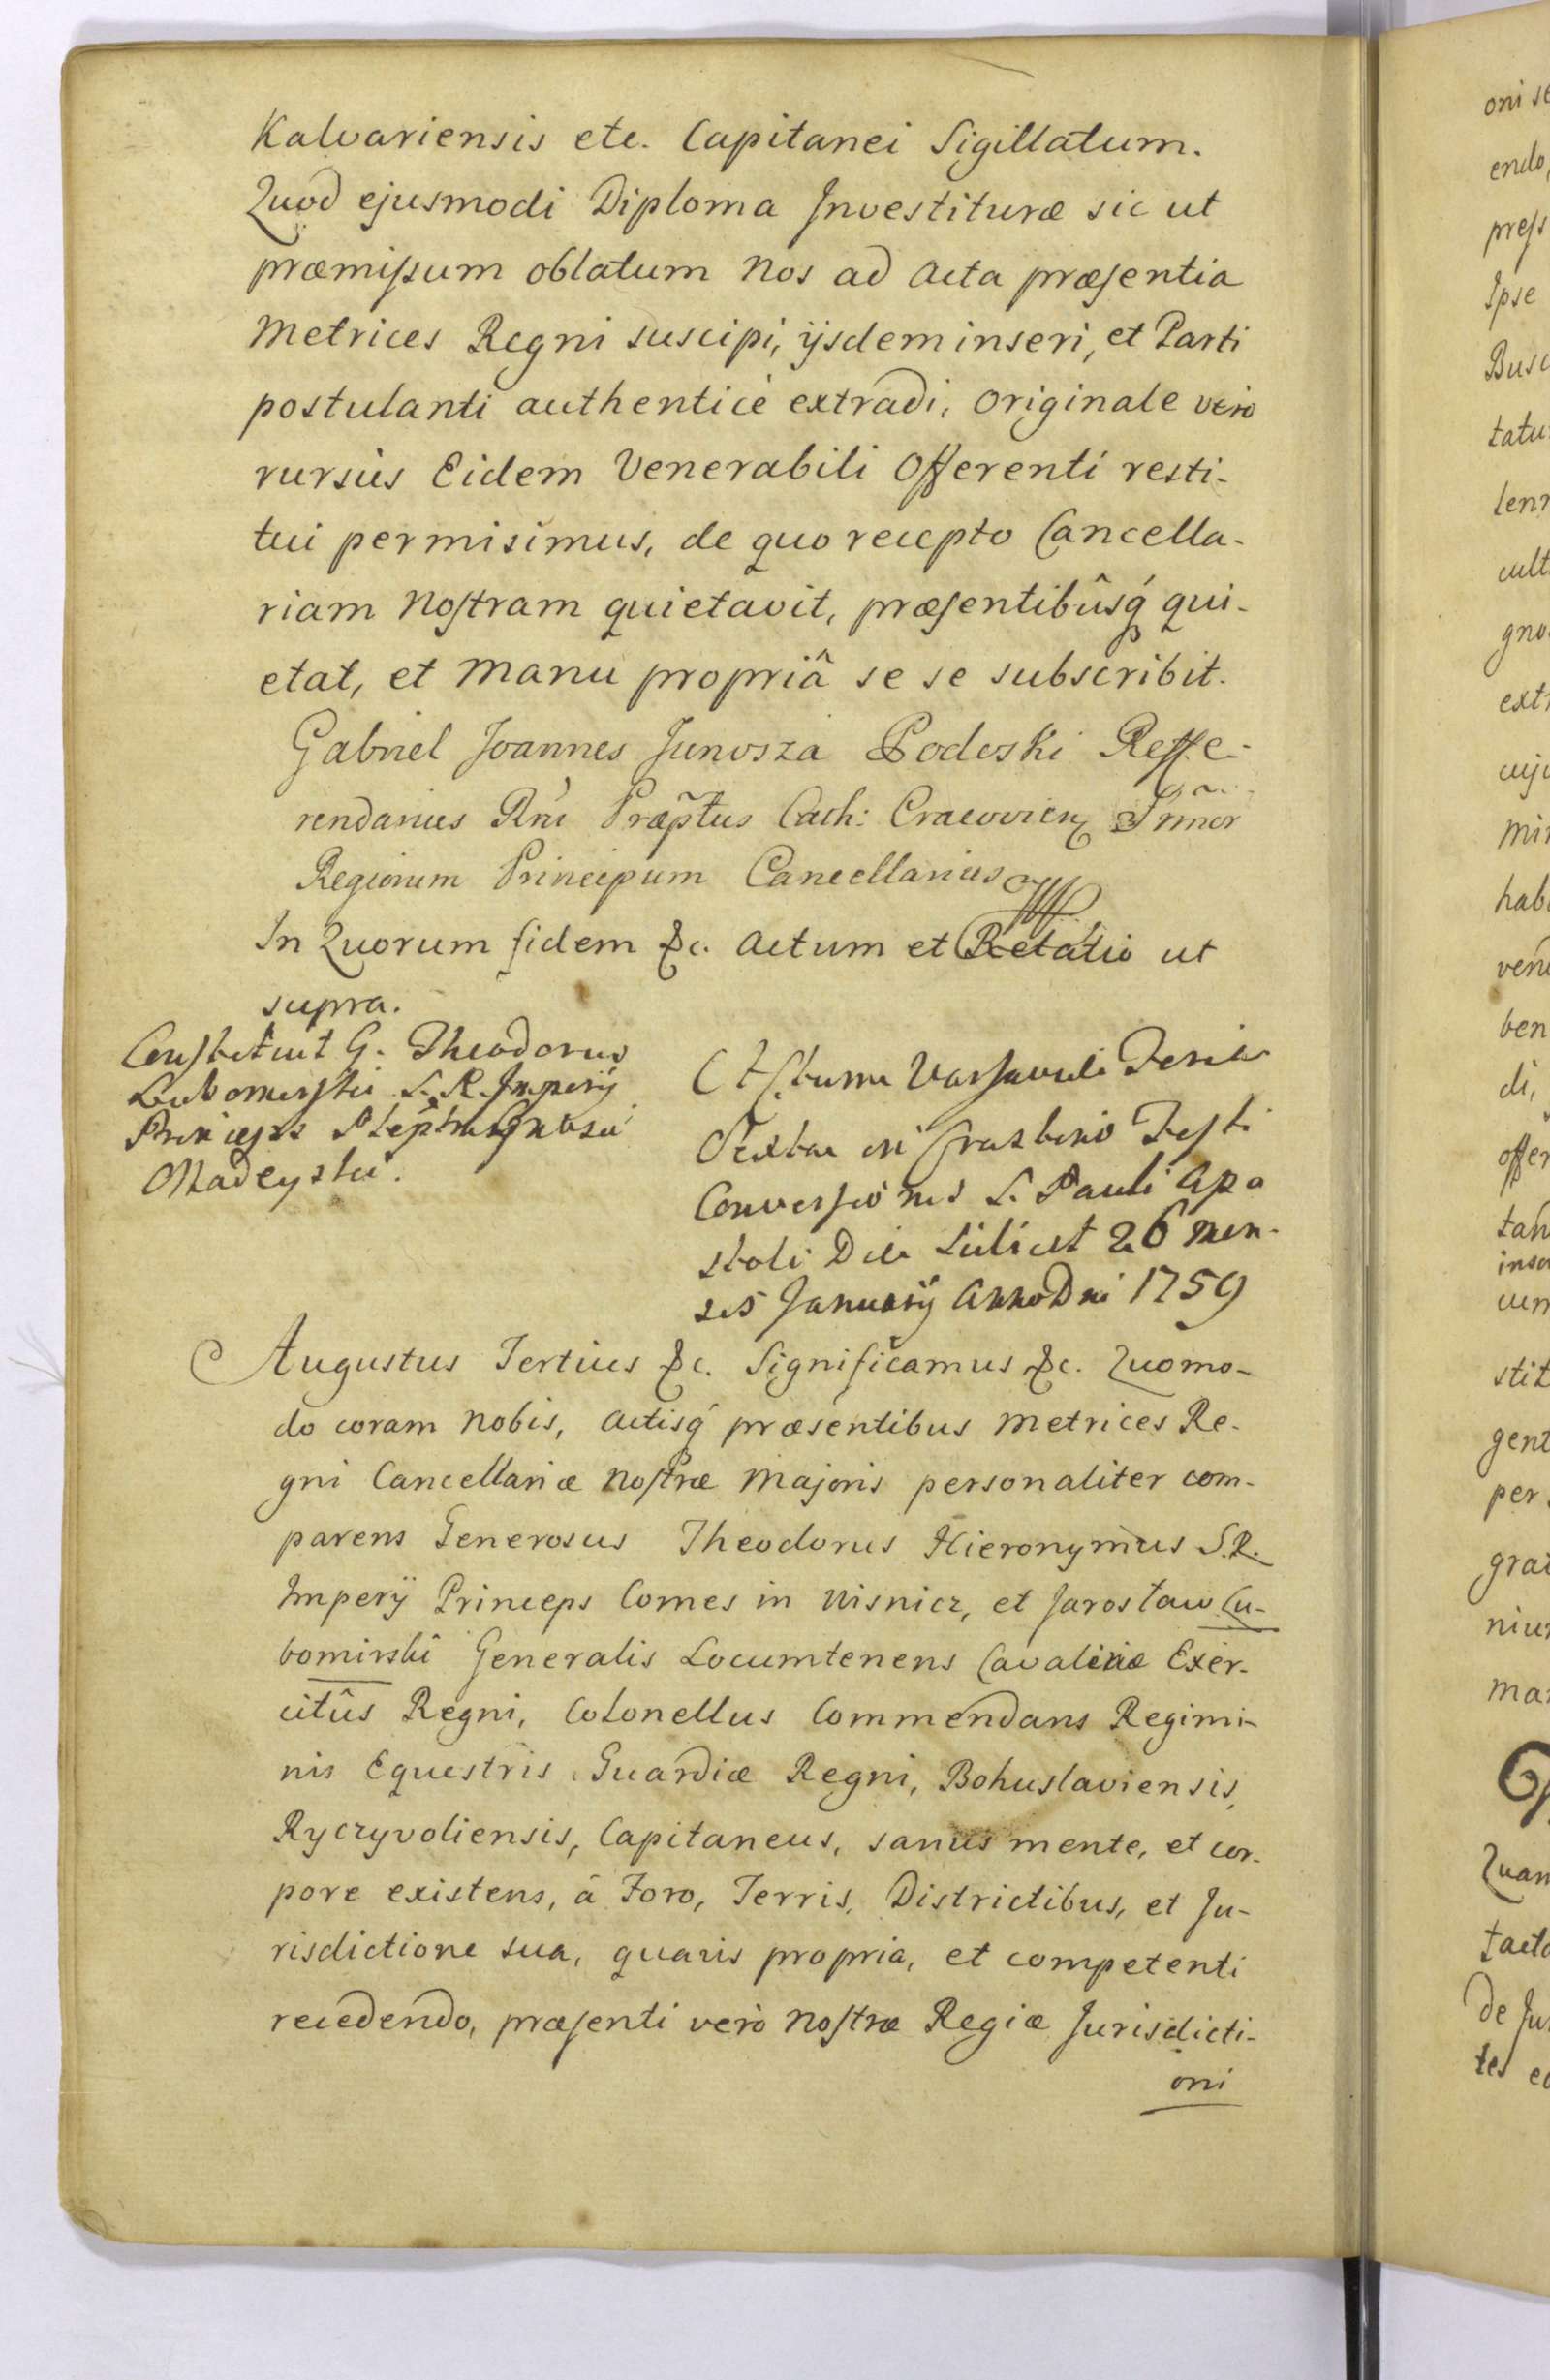 Kalvariensis etc. Capitanei Sigillatum.
Quod ejusmodi Diploma Investituræ sic ut
præmissum oblatum Nos ad Acta præsentia
Metrices Regni suscipi, ijsdem inseri, et Parti
postulanti authenticè extradi, Originale verò
rursus Eidem Venerabili Offerenti resti-
tui permisimus, de quo recepto Cancella-
riam Nostram quietavit, præsentibûsq́ qui-
etat, et Manu propriâ se se subscribit.
Gabriel Joannes Junosza Podoski Reffe-
rendarius Rni Præptus Cath: Cracovien
Regiorum Principum Cancellarius
In Quorum fidem &c. Actum et Relatio ut
supra.
Constituit G. Theodorus
Lubomirski S. R. Imperij
Princeps
Madeyski.
Actum Varsaviæ Feria
Sexta in Crastino Festi
Conversionis S. Pauli Apo
stoli Die Scilicet 26 men-
sis Januarij Anno Dni 1759
Augustus Tertius &c. Significamus &c. Quomo-
do coram Nobis, Actisq́ præsentibus Metrices Re-
gni Cancellariæ Nostræ Majoris personaliter com-
parens Generosus Theodorus Hieronymus S.R.
Imperij Princeps Comes in Wisnicz, et Jarosław Lu-
bomirski Generalis Locumtenens Cavaleriæ Exer-
citûs Regni, Colonellus Commendans Regimi-
nis Equestris Guardiæ Regni, Bohuslaviensis,
Ryczyvoliensis, Capitaneus, sanus mente, et cor-
pore existens, â Foro, Terris, Districtibus, et Ju-
risdictione sua, quavis propria, et competenti
recedendo, præsenti verò Nostræ Regiæ Jurisdicti-
oni